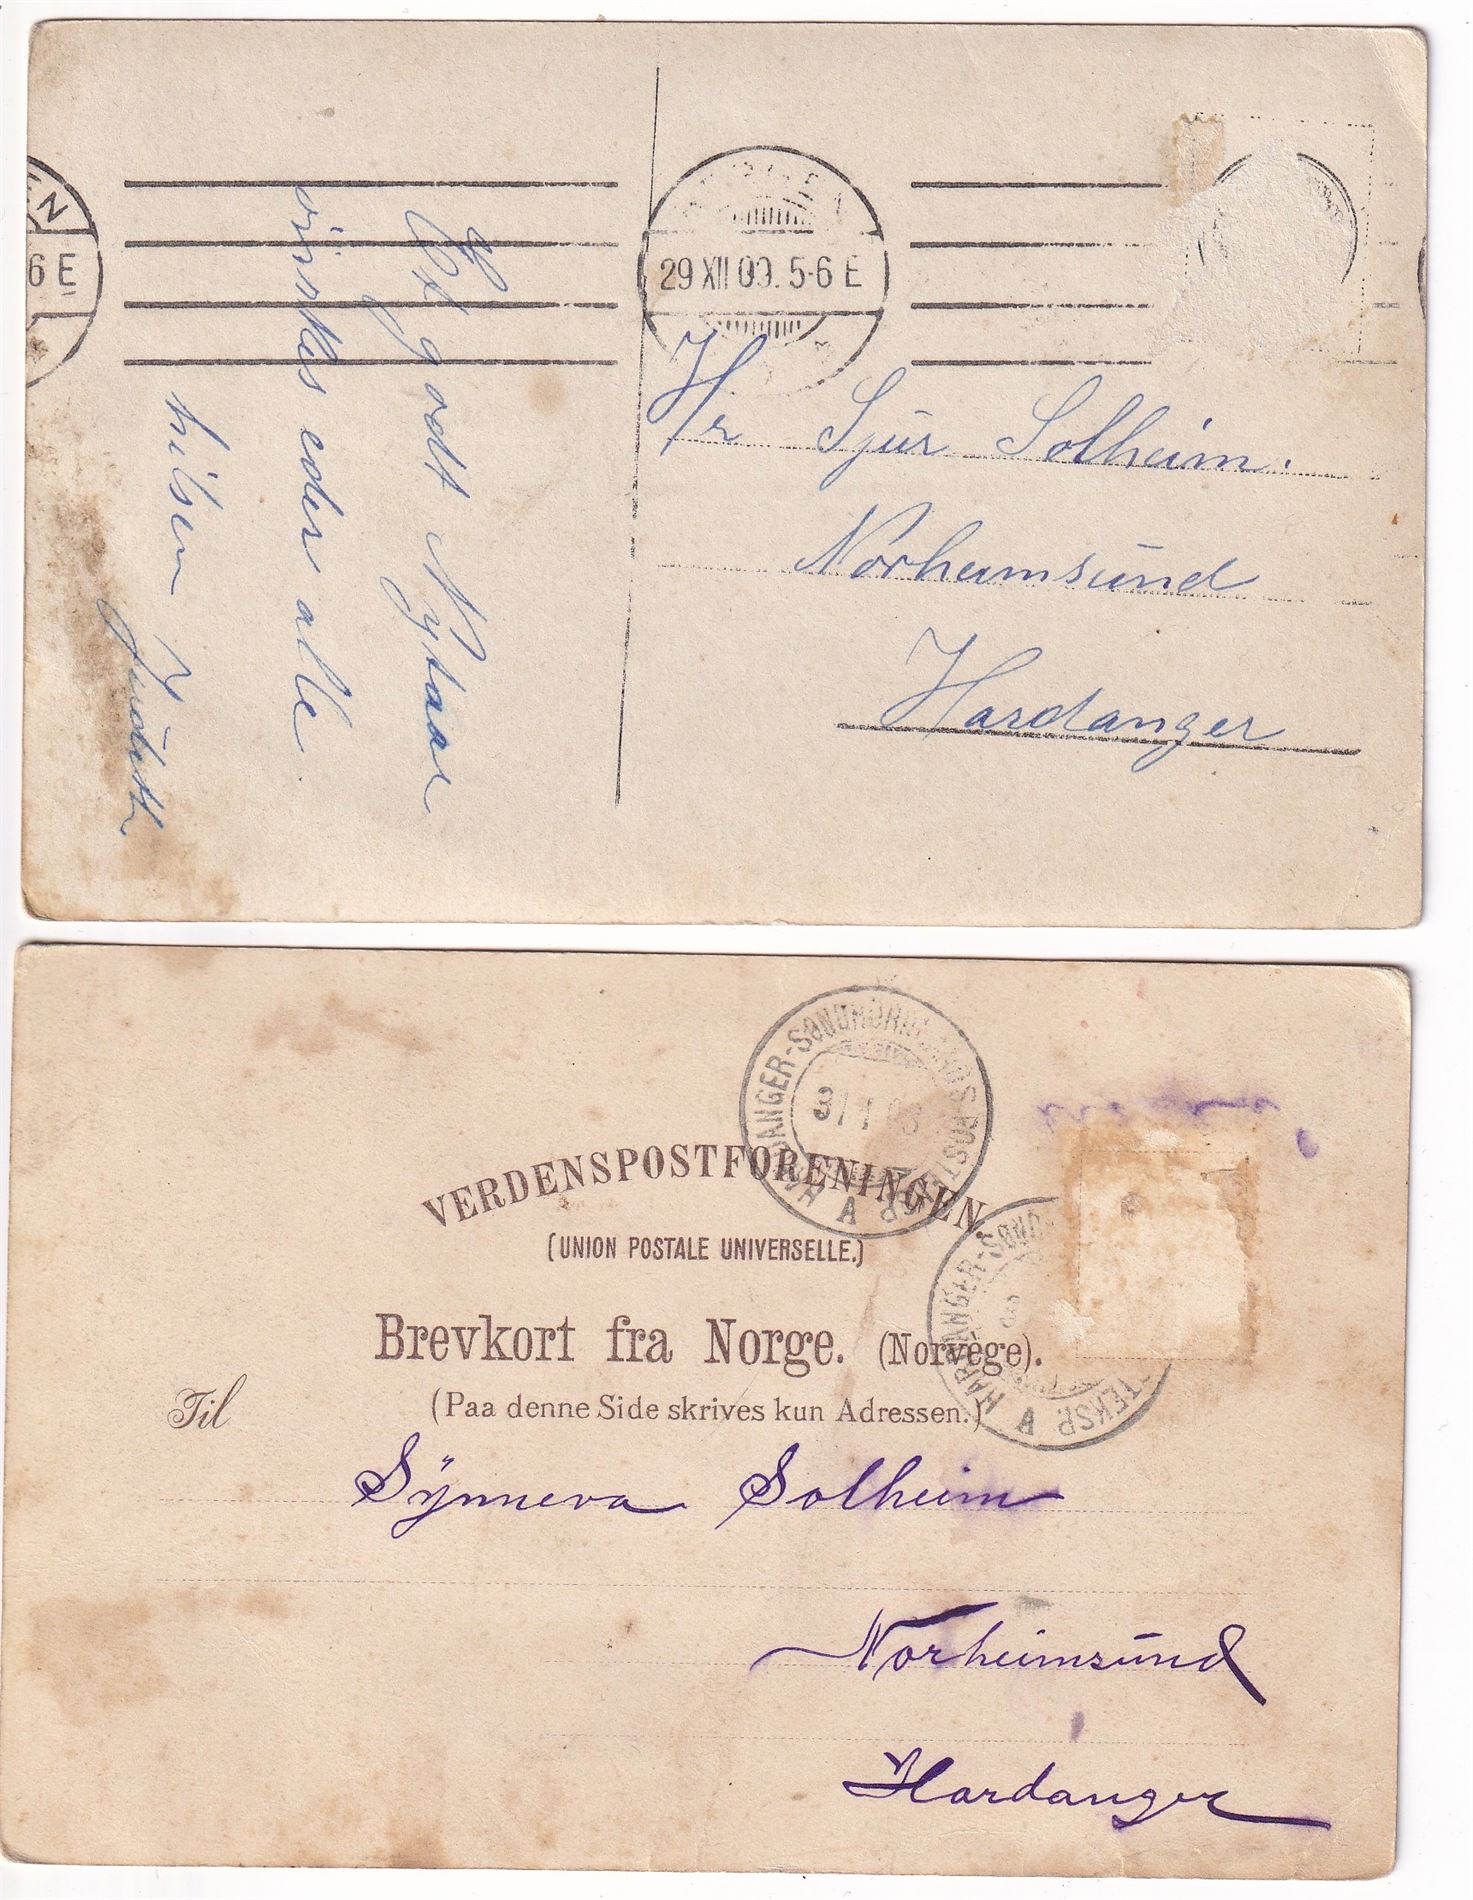 EN
6 E
29 XII 09. 5-6 E
Et godt Nytaar
önskes eder alle.
hilsen
Hr Sjur Solheim.
Norheimsund
Hardanger
HARDANGER-SØNDHORDLANDS POSTEKSP. A
31 1 03
VERDENSPOSTFORENINGEN.
(UNION POSTALE UNIVERSELLE.)
HARDANGER-SØND
TEKSP. A
Brevkort fra Norge. (Norvège).
(Paa denne Side skrives kun Adressen.)
Til
Synneva Solheim
Norheimsund
Hardanger